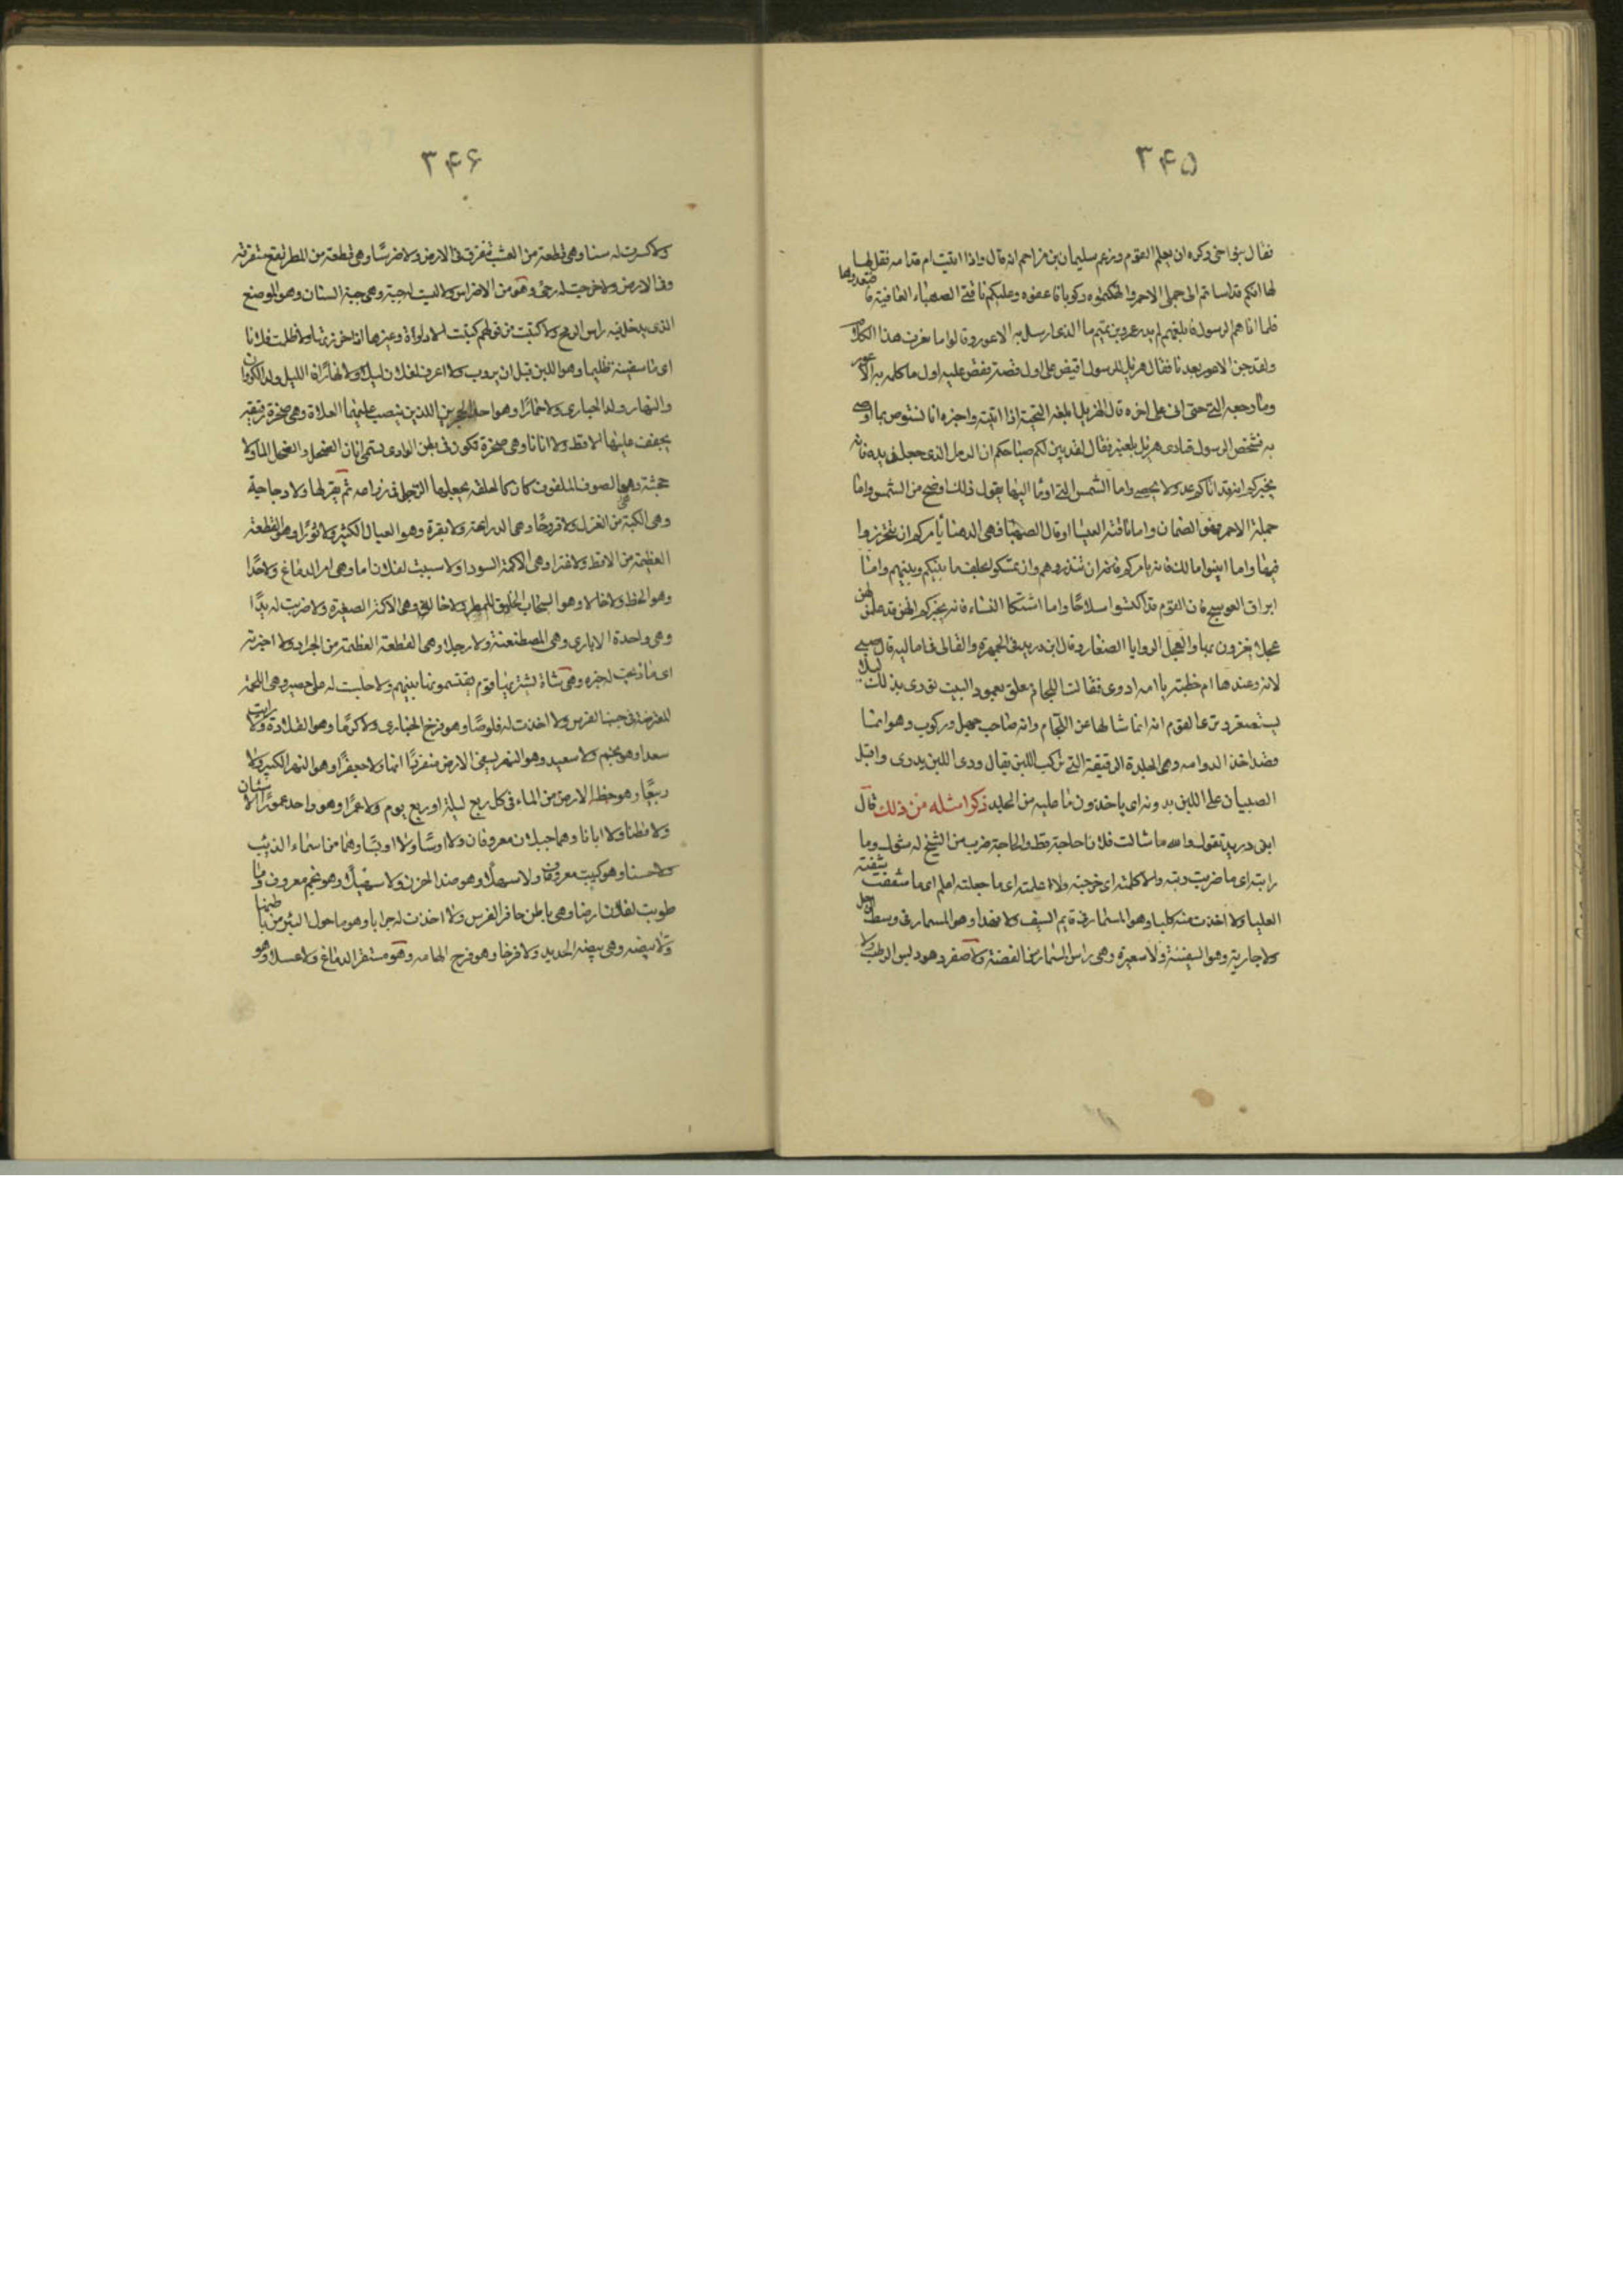 ٣۴۵
فقال بنو اخى وكره ان يعلم القوم وزعم سليمان بن مزاحم انه قال واذا اتيتم قدامه فقل لها
لها انكم قد اساتم الى جملى الاحمر وانهكتموه ركوبا فاعفوه وعليكم ناقتى الصهباء العافية فاقتعدوها
فلما اتاهم الرسول فابلغهم لم يدر عمرو بن تميم ما الذى ارسل به الاعور وقالوا ما نعرف هذا الكلام
ولقد جن الاعور بعدنا فقال هزيل للرسول اقتص على اول قصته فقص عليه اول ما كلمه به الاعور
وما رجعه اليه حتى اتى على اخره قال الهزيل ابلغه التحية اذا اتيته واخبره انا نستوصى بما اوصى
به فشخص الرسول فنادى هزيل بلعنبر فقال لقد بين لكم صاحبكم اما الرمل الذى جعل فى يده فانه
يخبركم انه قد اتاكم عدد لا يحصى واما الشمس التى اوما اليها يقول ذلك اوضح من الشمس واما
جمله الاحمر فهو الصمان واما ناقته العيساء او قال الصهباء فهى الدهناء يامركم ان تتحرزوا
فيها واما ابينوا مالك فانه يامركم ان تنذروهم وان تمسكوا بحلف ما بينكم وبينهم واما
ايراق العوسج فان القوم قد اكتسوا سلاحا واما اشتكاء النساء فانه يخبركم انهن قد عملن لهن
عجلا يغزون بها والعجل الروايا الصغار وقال ابن دريد فى الجمهرة والقالى فى اماليه قال صبى
لامه وعندها ام خطبته يا امه ادوى فقالت اللجام معلق بعمود البيت تورى بذلك ليلا
يستصغره وترى القوم انه انما سالها عن اللجام وانه صاحب خيل وركوب وهو انما
قصد اخذ الدوايه وهى الجلدة الرقيقة التى تركب اللبن يقال دوى اللبن يدوى واقبل
الصبيان على اللبن يدوونه اى ياخذون ما عليه من الجلد ذكر امثله من ذلك قال
ابن دريد تقول والله ما سالت فلانا حاجة قط والحاجة ضرب من الشجر له شوك وما
رايته اى ما ضربت ريته ولا كلمته اى جرحته ولا اعلمته اى ما جعلته اعلم اى ما شققت شفته
العليا ولا اخذت منه كلبا وهو المسمار فى قايم السيف ولا فهدا وهو المسمار فى وسط الرحل
ولا جارية وهو السفينة ولا شعيرة وهى راس المسمار من الفضة ولا صقرا وهو دبس الرطب ولا
٣۴۶
ولا كسرت له سنا وهى قطعة من العشب تتفرق فى الارض ولا ضرسا وهى قطعة من المطر تقع متفرقه
فى الارض ولا خرجت له رحى وهو من الاضراس ولا لبست له جبة وهى جبة السنان وهو الموضع
الذى يدخل فيه راس الرمح ولا كتبت من قولهم كتبت المرادة وغيرها اذا خرزتها ولا ظلمت فلانا
اى ما سقيته ظليما وهو اللبن قبل ان يروب ولا اعرف لفلان ليلا ولا نهارا فالليل ولد الكروان
والنهار ولد الحبارى ولا حمارا وهو احد الحجرين اللذين ينصب عليهما العلاة وهى صخرة رقيقه
يجفف عليها الاقط ولا اتانا وهى صخرة تكون فى بطن الوادى تسمى اتان الضحل والضحل الماء ولا
جحشة وهى الصوف الملفوف كان كالحلقه يجعلها الرجل فى ذراعه ثم يغزلها ولا دجاجة
وهى الكبة من الغزل ولا فروجا وهى الدراعة ولا بقرة وهو العيال الكثير ولا ثورا وهو القطعة
العظيمة من الاقط ولا عنزا وهى الاكمة السودا ولا سببت لفلان اما وهى ام الدماغ ولا جدا
وهو الحظ ولا خالا وهو السحاب الخليق للمطر ولا خاله وهى الاكمة الصغيرة ولا ضربت له يدا
وهى واحدة الايادى وهى المصطنعة ولا رجلا وهى القطعة العظيمة من الجراد ولا اخبرته
اى ما ذبحت له خبره وهى شاة يشتريها قوم يقتسمونها بينهم ولا جلست له على حصير وهى اللحمة
المعترضة فى جنب الفرس ولا اخذت له قلوصا وهو فرخ الحبارى ولا كرما وهو القلادة ولا رايت
سعدا وهو نجم ولا سعيد وهو النهر يسقى الارض منفردا بها ولا جعفرا وهو النهر الكبير ولا
ربيعا وهو حظ الارض من الماء فى كل ربع ليلة او ربع يوم ولا عمرا وهو واحد عمور الاسنان
ولا قطنا ولا ابانا وهما جبلان معروفان ولا اوسا ولا اويسا وهما من اسماء الذئب
ولا حسنا وهو كثيب معروف ولا سهلا وهو ضد الحزن ولا سهيلا وهو نجم معروف وما
طويت لفلان ارضا وهى باطن حافر الفرس ولا اخذت له جرابا وهو ما حول البئر من باطنها
ولا بيضه وهى بيضه الحديد ولا فرخا وهو فرخ الهامه وهو مستقر الدماغ ولا عسلا وهو